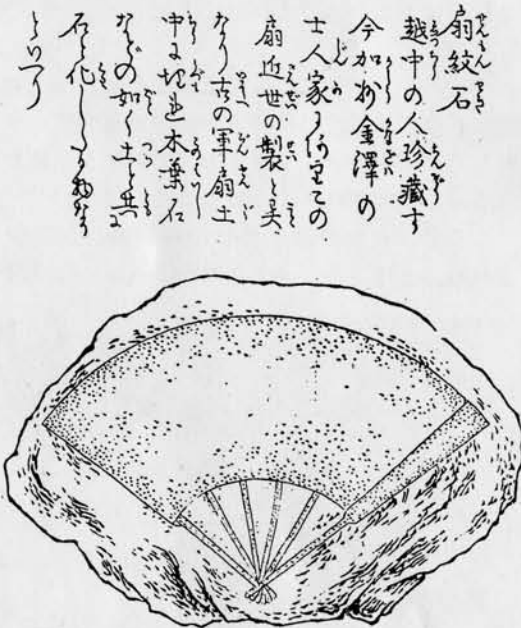 扇紋石
越中の人珍藏す
今加州金澤の
士人家に傳ふその
扇近世の製と異
なり古の軍扇土
中に埋れ木葉石
などの如く土と共に
石と化したる物なり
といへり